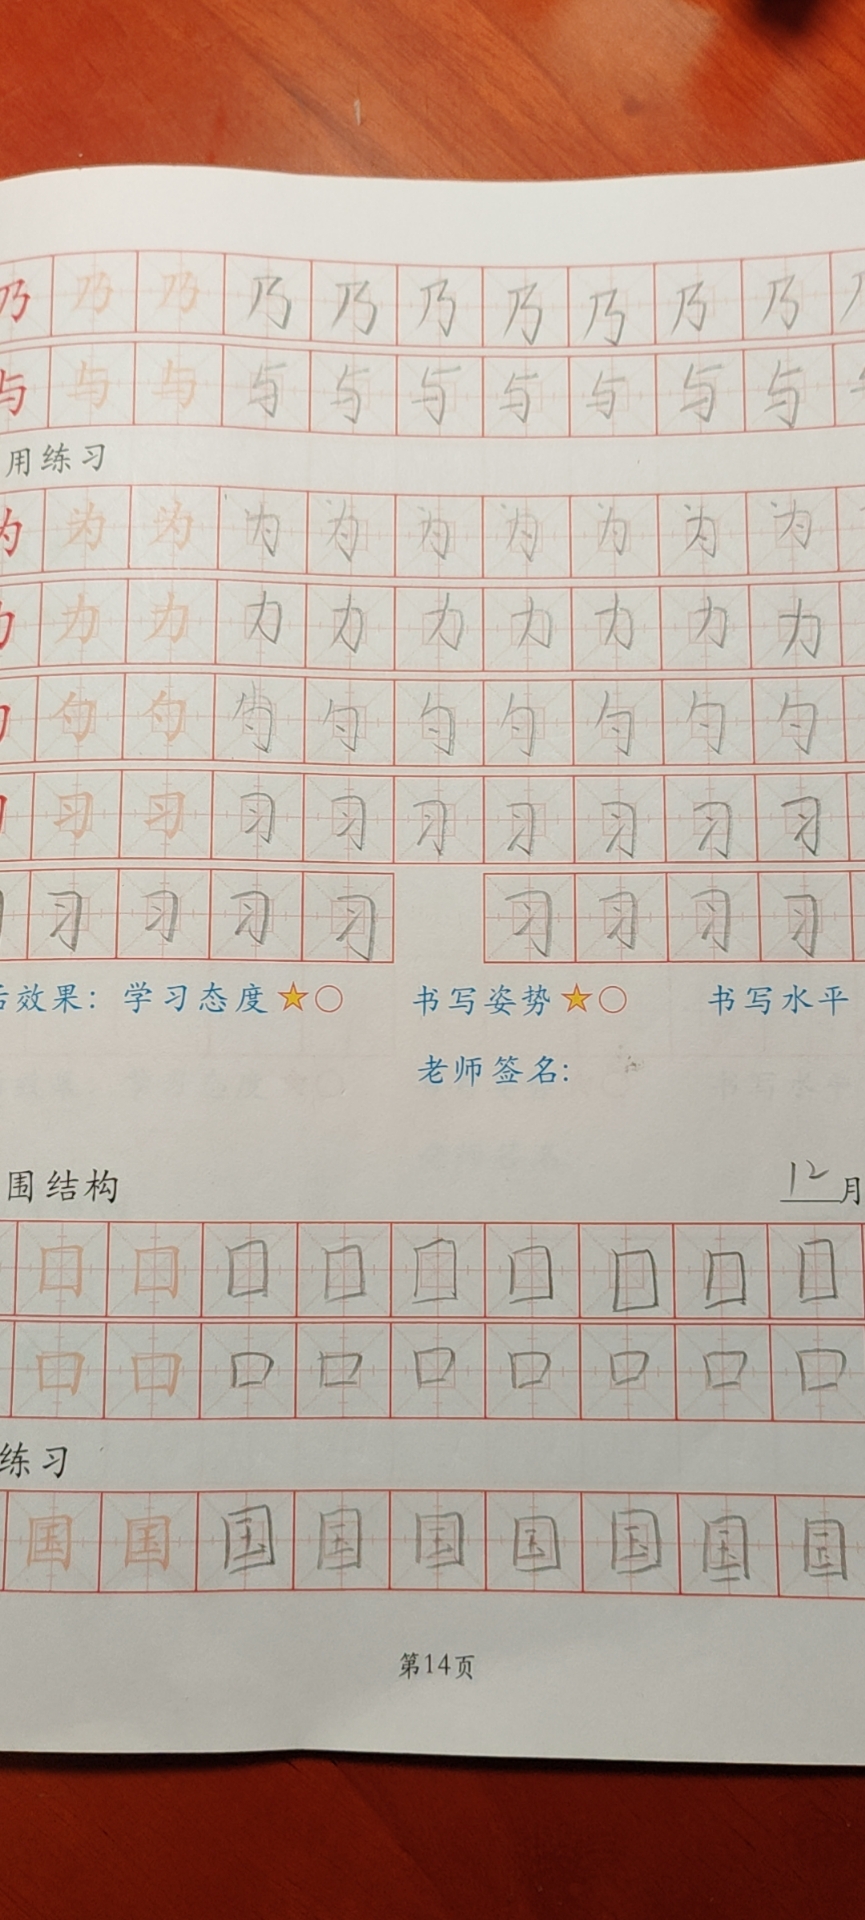 乃乃乃乃乃乃乃乃乃乃
与与与与与与与与与与
用练习
为为为为为为为为为为
力力力力力力力力力
勺勺勺勺勺勺勺勺勺
习习习习习习习习习
习习习习习 习习习习
效果：学习态度★○ 书写姿势★○ 书写水平
老师签名：
围结构 12月
囗囗囗囗囗囗囗囗囗
口口口口口口口口口
练习
国国国国国国国国国
第14页